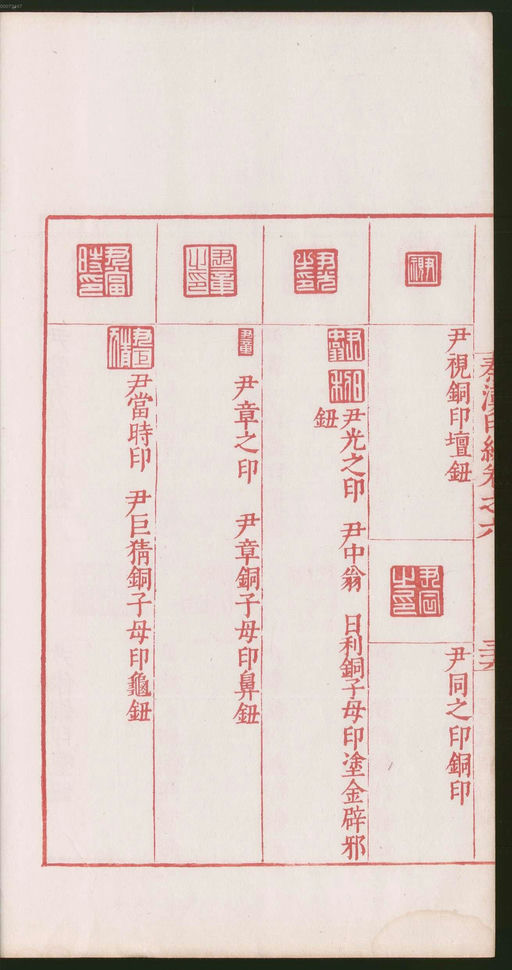 秦漢印統卷之六
尹視銅印壇鈕
尹同之印銅印
尹光之印 尹中翁 日利銅子母印塗金辟邪
鈕
尹章之印 尹章銅子母印鼻鈕
尹當時印 尹巨猜銅子母印龜鈕